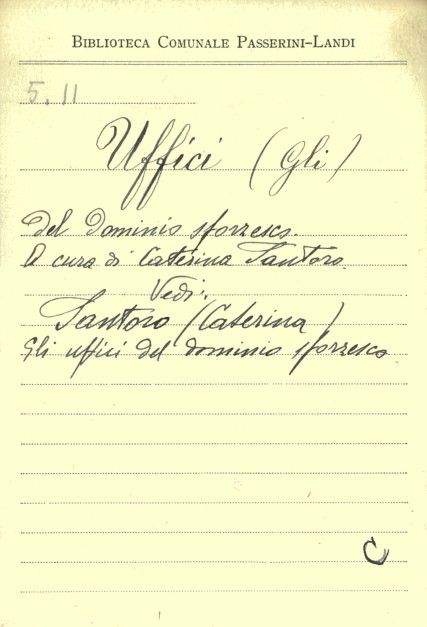 Biblioteca Comunale Passerini-Landi
5.11
Uffici (Gli)
del dominio sforzesco.
A cura di Caterina Santoro.
Vedi:
Santoro (Caterina)
Gli uffici del dominio sforzesco
C